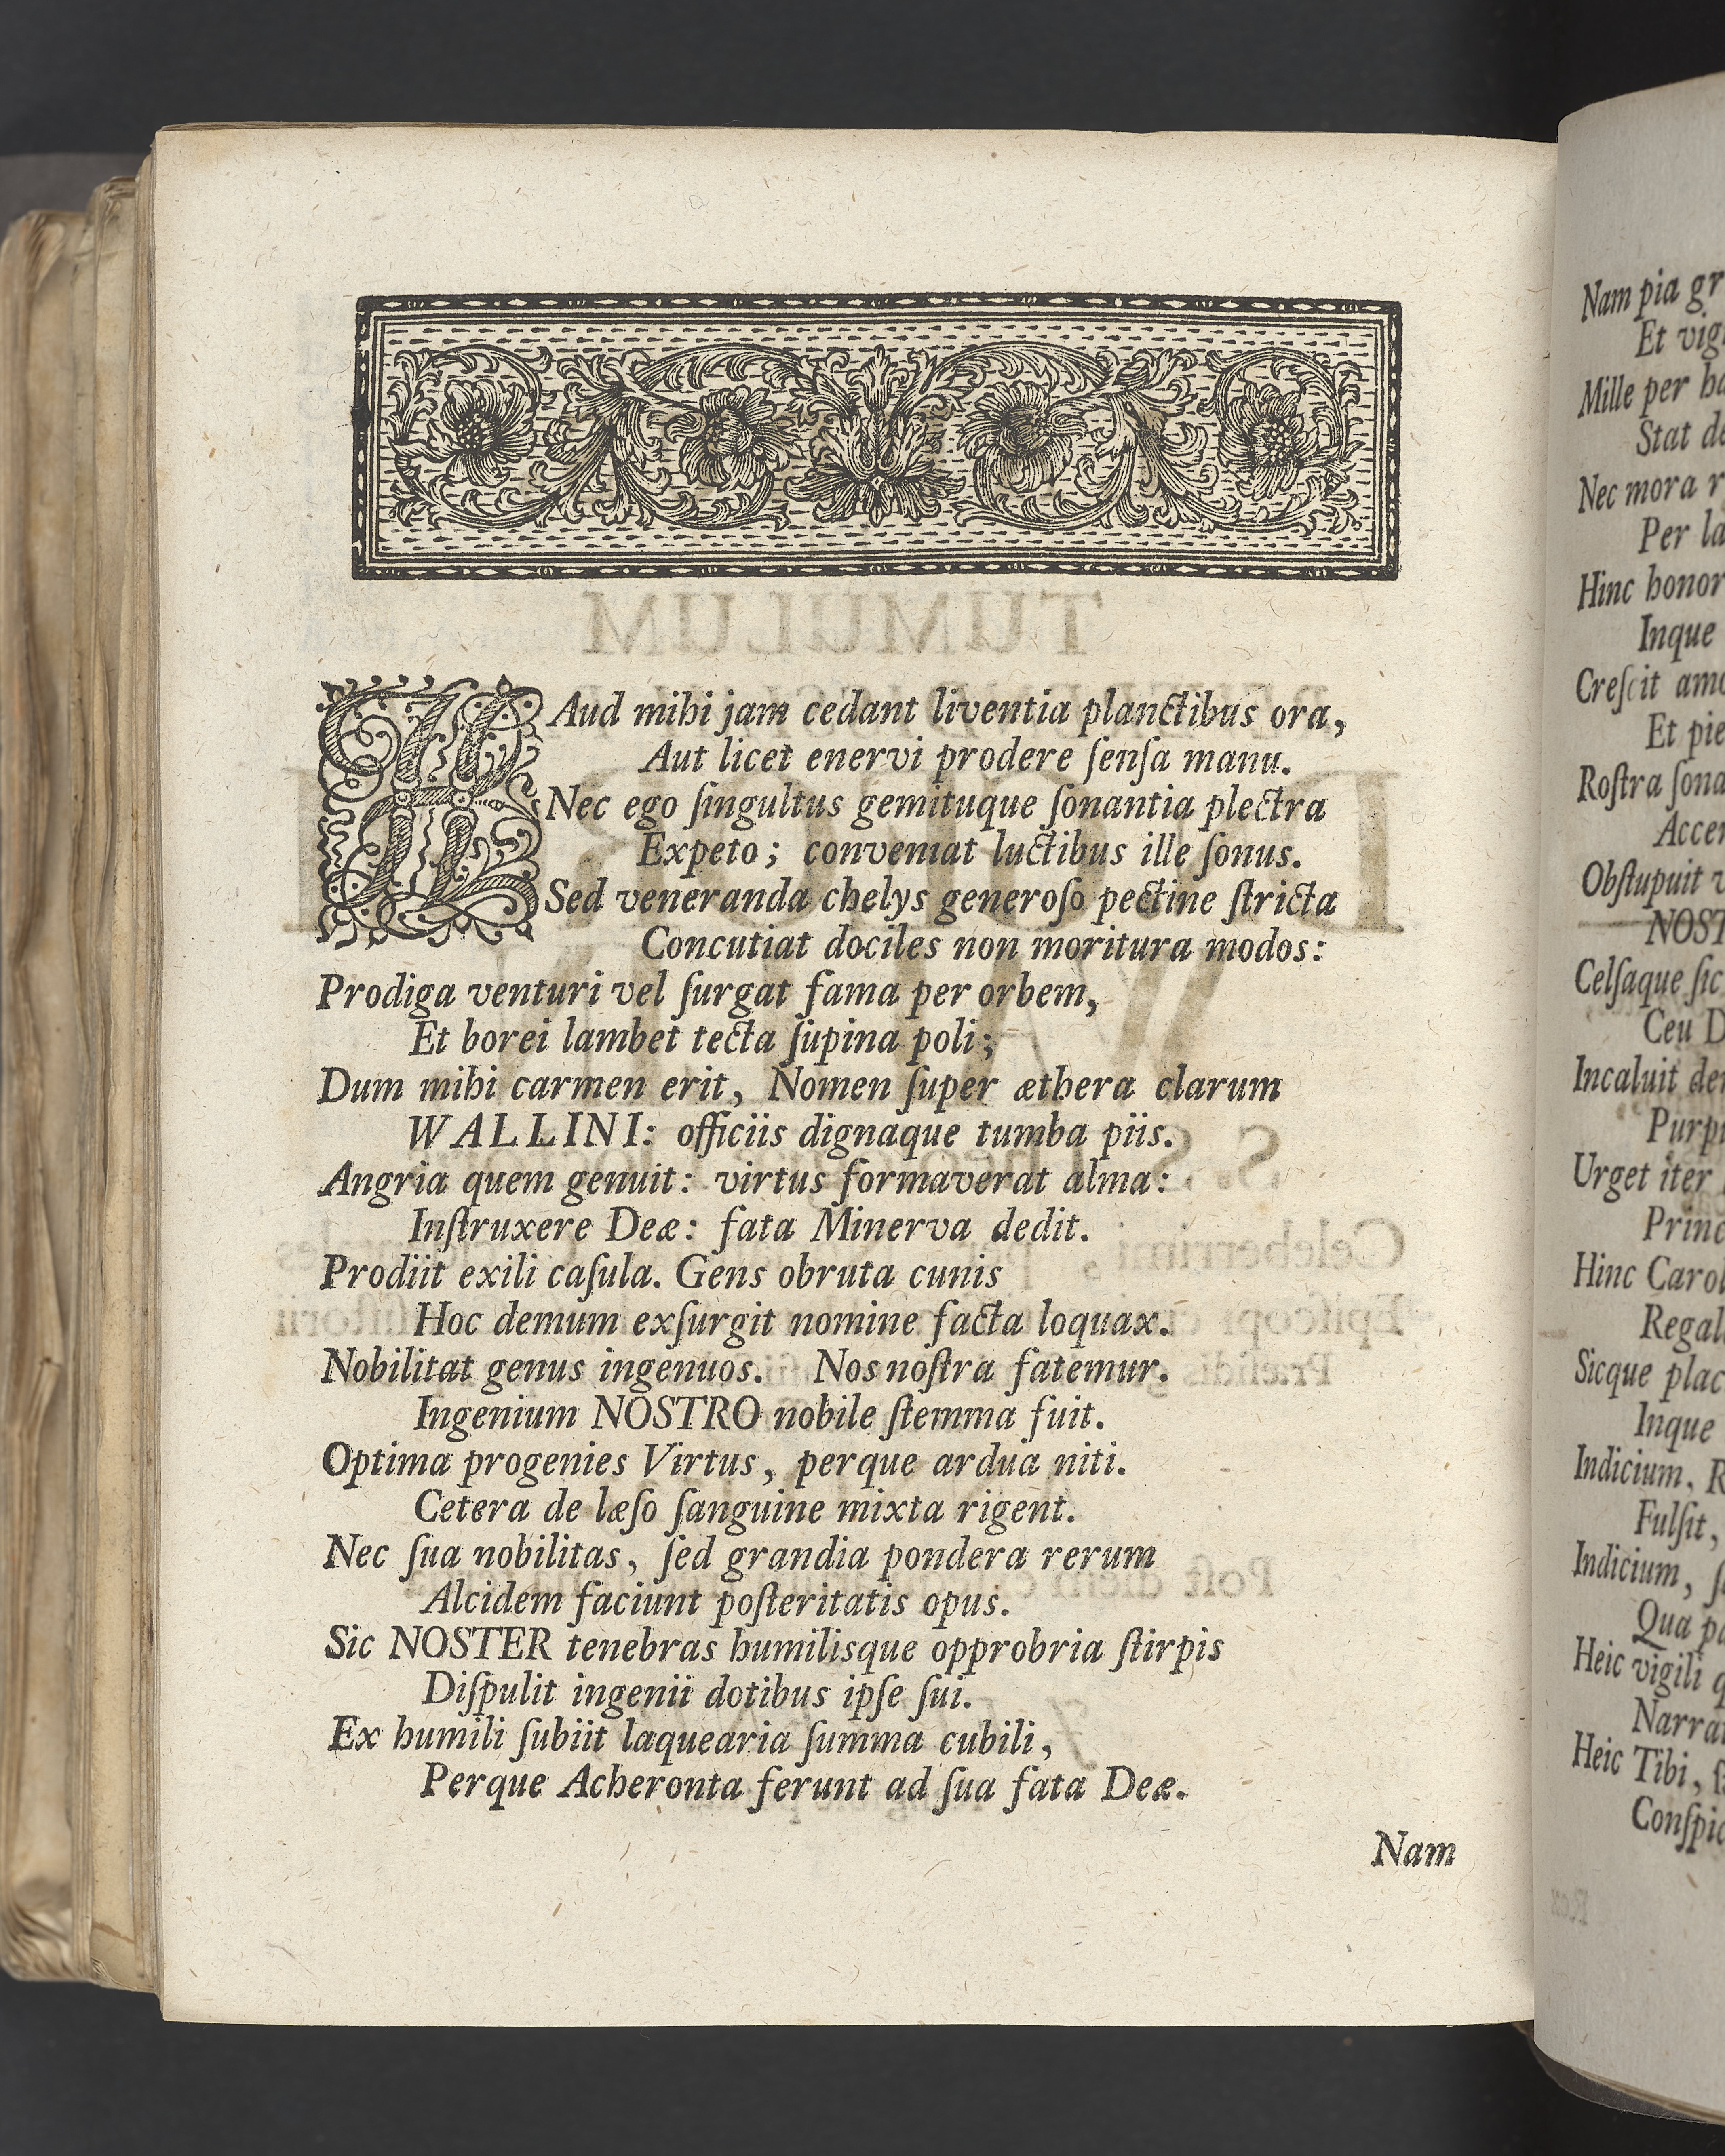 HAud mihi jam cedant liventia planctibus ora,
Aut licet enervi prodere ſenſa manu.
Nec ego ſingultus gemituque ſonantia plectra
Expeto; conveniat luctibus ille ſonus.
Sed veneranda chelys generoſo pectine ſtricta
Concutiat dociles non moritura modos:
Prodiga venturi vel ſurgat fama per orbem,
Et borei lambet tecta ſupina poli;
Dum mihi carmen erit, Nomen ſuper æthera clarum
WALLINI: officiis dignaque tumba piis.
Angria quem genuit: virtus formaverat alma:
Inſtruxere Deæ: fata Minerva dedit.
Prodiit exili caſula. Gens obruta cunis
Hoc demum exſurgit nomine facta loquax.
Nobilitat genus ingenuos. Nos noſtra fatemur.
Ingenium NOSTRO nobile ſtemma fuit.
Optima progenies Virtus, perque ardua niti.
Cetera de læſo ſanguine mixta rigent.
Nec ſua nobilitas, ſed grandia pondera rerum
Alcidem faciunt poſteritatis opus.
Sic NOSTER tenebras humilisque opprobria ſtirpis
Diſpulit ingenii dotibus ipſe ſui.
Ex humili ſubiit laquearia ſumma cubili,
Perque Acheronta ferunt ad ſua fata Deæ.
Nam
Nam pia
Et
Mille per
Stat
Nec mora
Per
Hinc
Inque
Creſcit
Et
Roſtra
Obſtupuit
Celſaque ſic
Ceu
Incaluit
Urget iter
Hinc
Sicque
Inque
Indicium.
Fulſit,
Indicium,
Qua
Heic vigili
Heic Tibi,